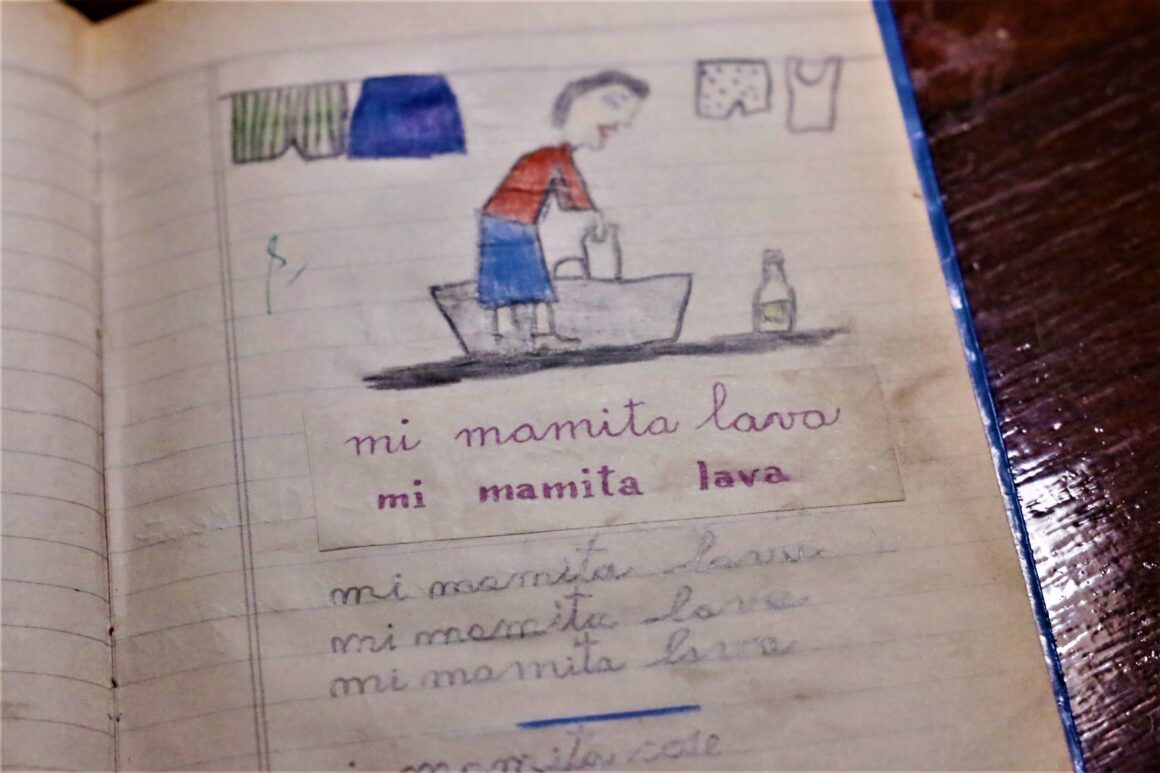 mi mamita lava
mi mamita lava
mi mamita lava
mi mamita lava
mi mamita lava
mi mamita cose